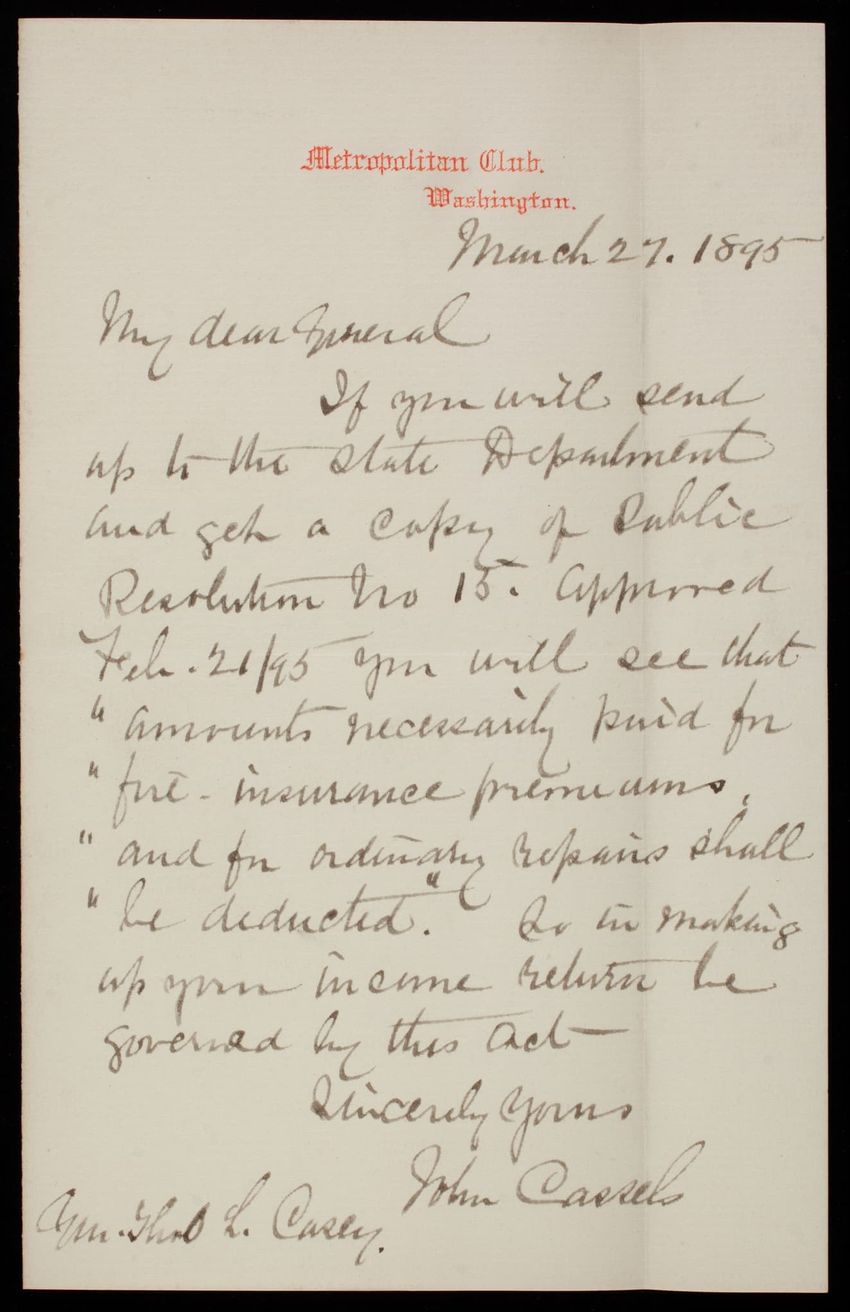 Metropolitan Club.
Washington.
March 27. 1895
My dear General
If you will send
up to the State Department
and get a copy of Public
Resolution No 15. approved
Feb. 21/95 you will see that
"amounts necessarily paid for
"fire-insurance premiums,
"and for ordinary repairs shall
"be deducted." So in making
up your income return be
governed by this Act—
Sincerely Yours
John Cassels
Gen. Thos L. Casey.